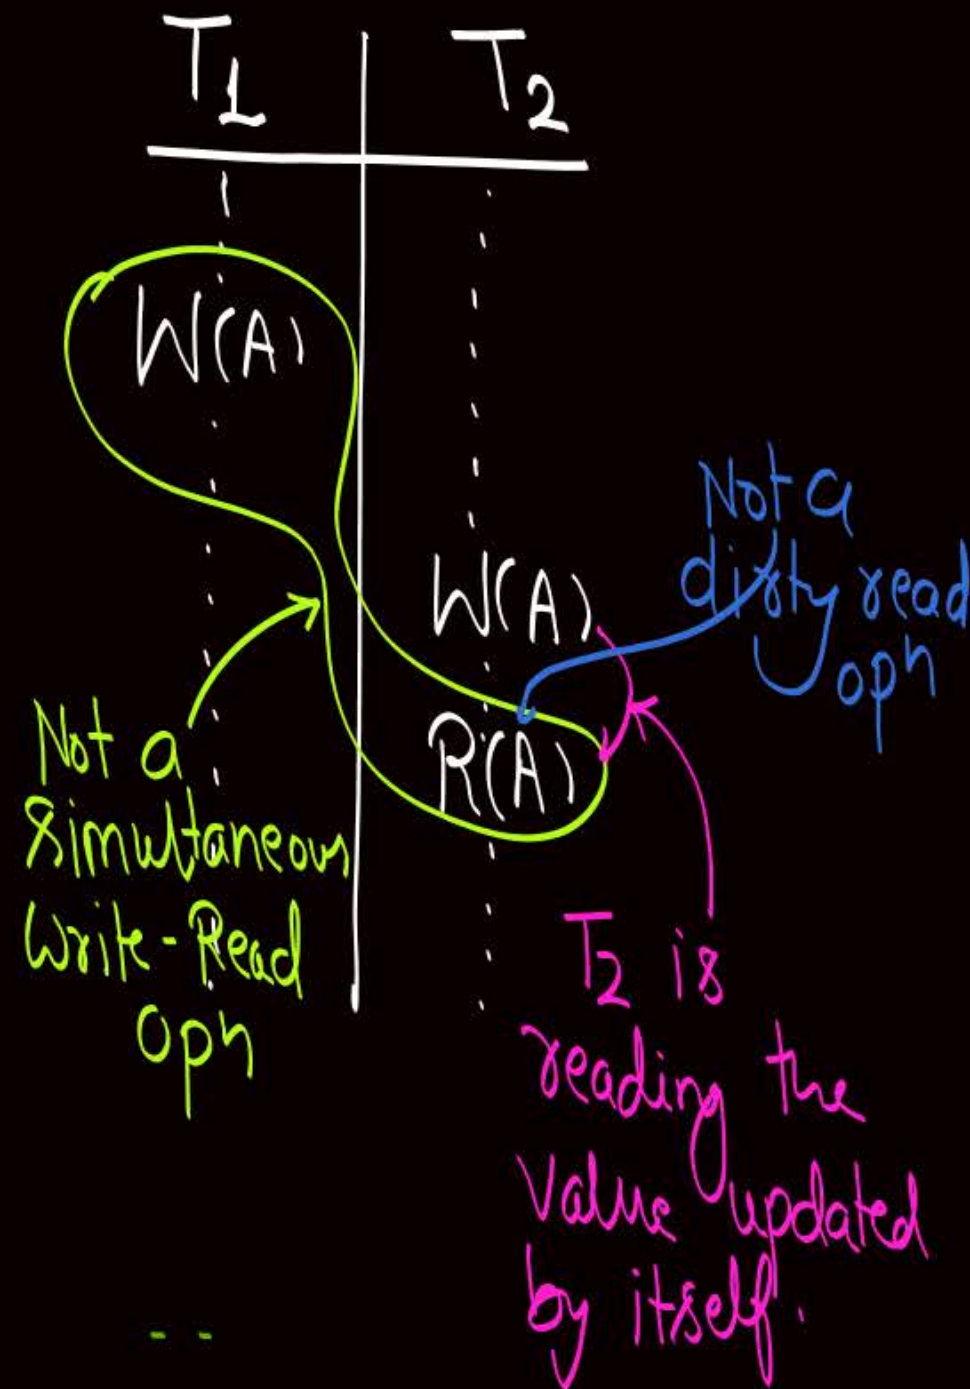 T1 T2
W(A)
W(A)
R(A)
Not a
dirty read
opn
Not a
simultaneous
Write-Read
opn
T2 is
reading the
value updated
by itself.